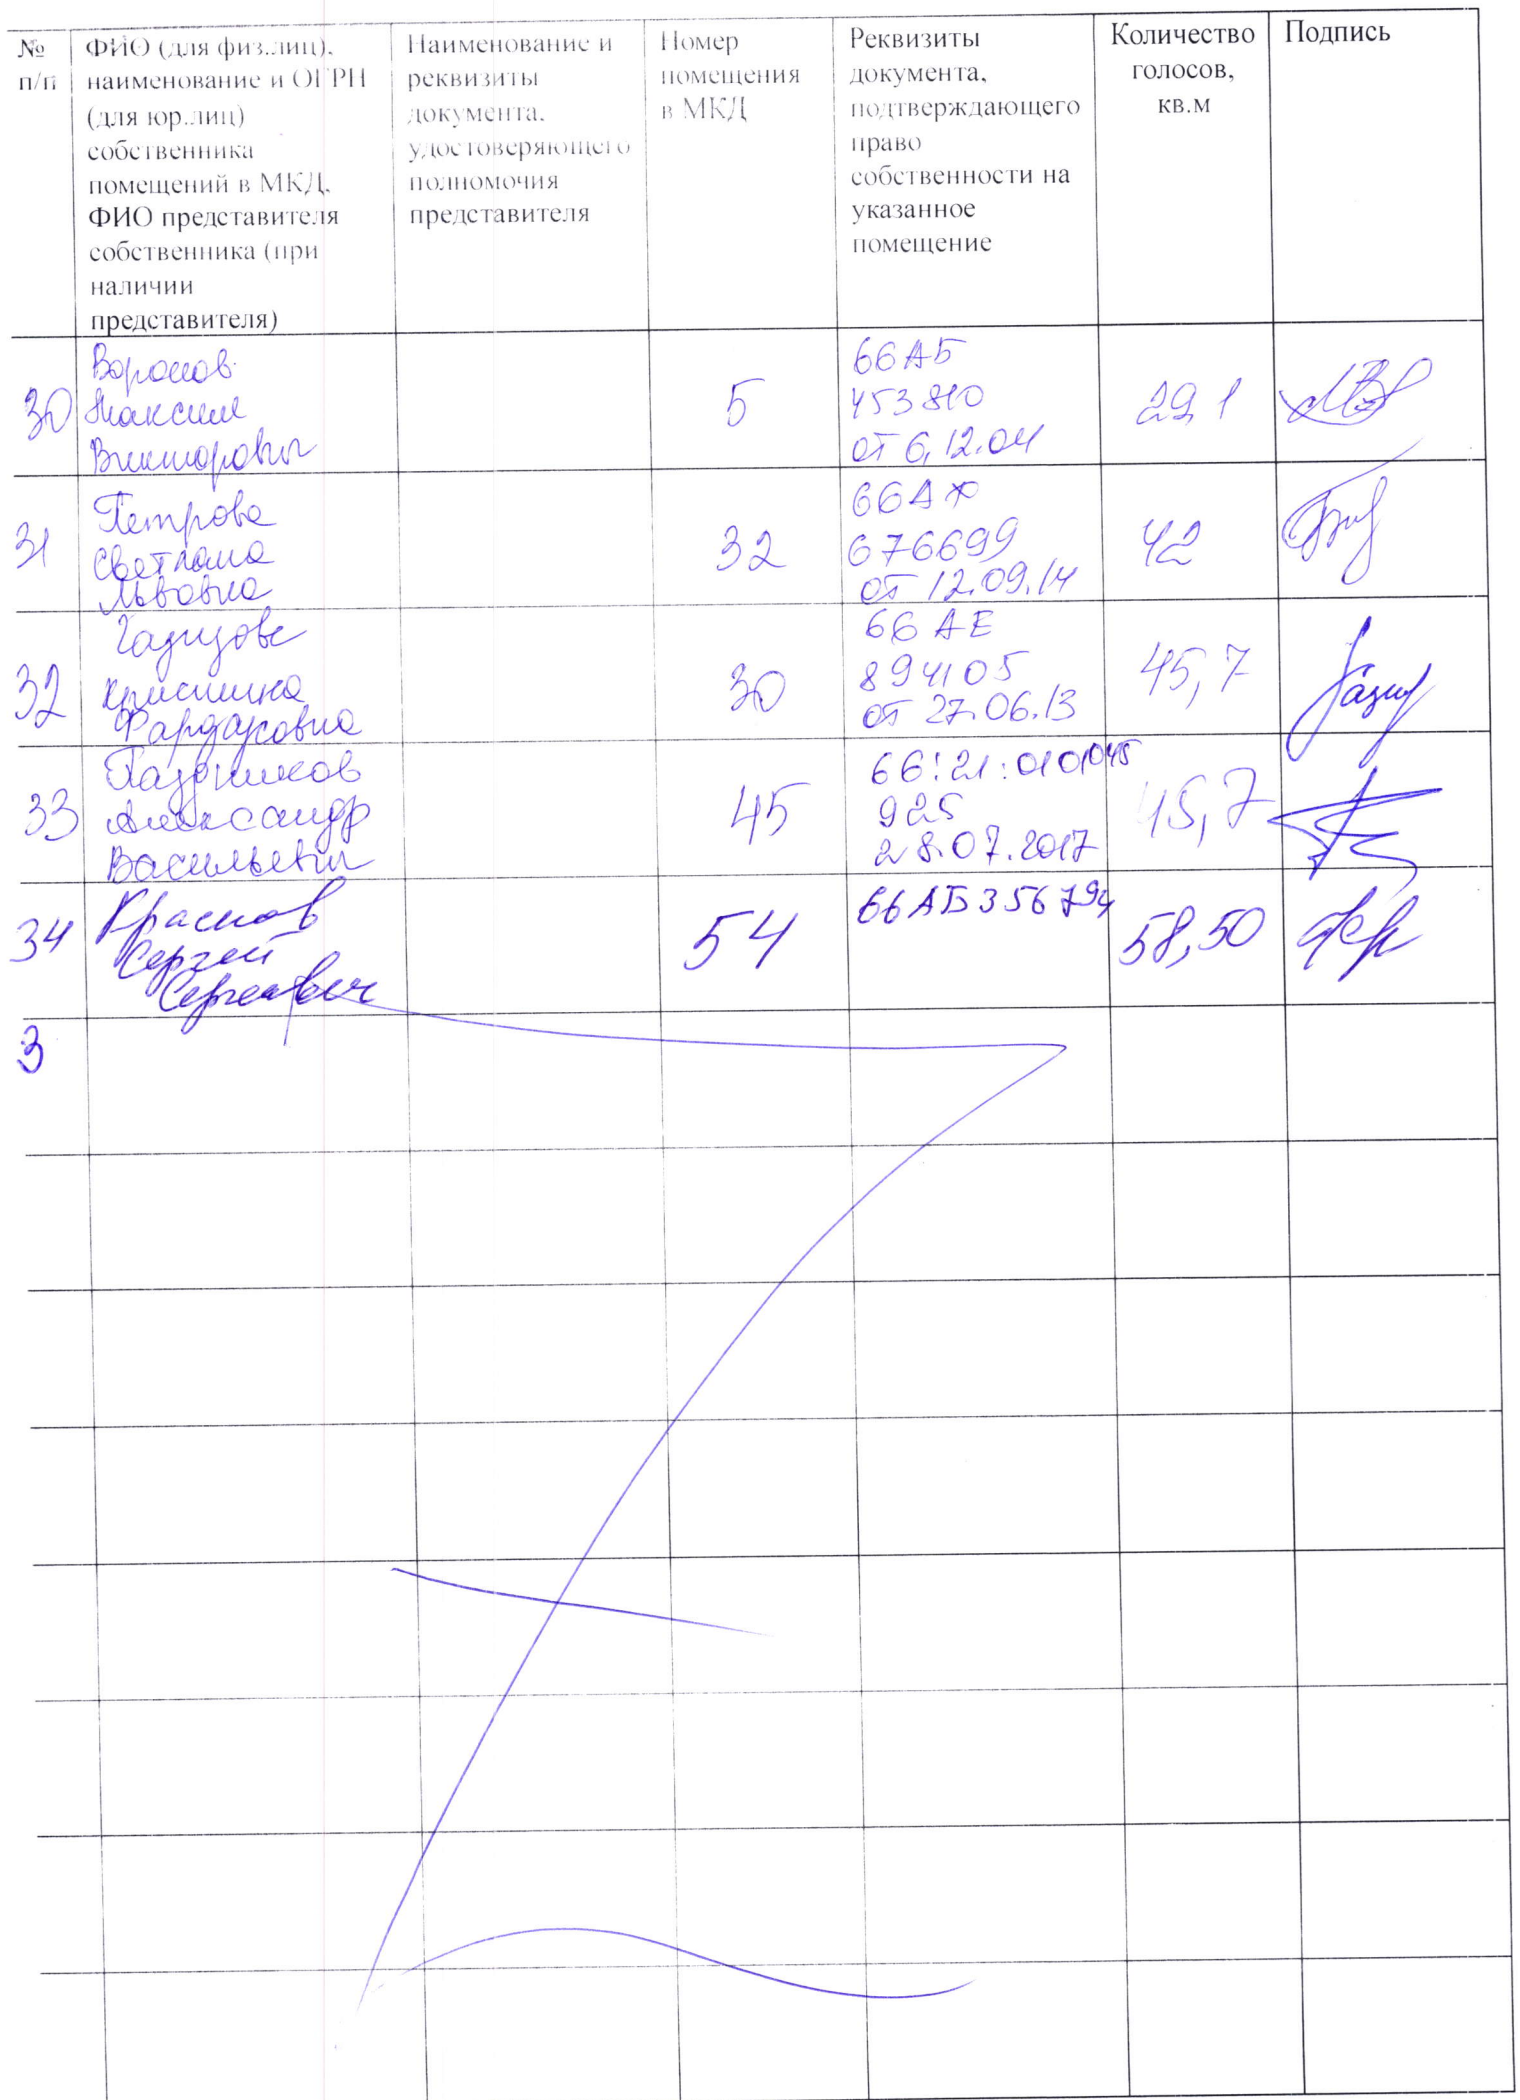 № п/п
ФИО (для физ.лиц),
наименование и ОГРН
(для юр.лиц)
собственника
помещений в МКД,
ФИО представителя
собственника (при
наличии
представителя)
Наименование и
реквизиты
документа,
удостоверяющего
полномочия
представителя
Номер
помещения
в МКД
Реквизиты
документа,
подтверждающего
право
собственности на
указанное
помещение
Количество
голосов,
кв.м
Подпись
30
Воронов
Максим
Викторович
5
66 АБ
453810
от 6.12.04
29,1
31
Петрова
Светлана
Львовна
32
66АЖ
676699
от 12.09.14
42
32
Газизова
Кристина
Фардаусовна
30
66 АЕ
894105
от 27.06.13
45,7
33
Паздников
Александр
Васильевич
45
66:21:0101045
925
28.07.2017
45,7
34
Краснов
Сергей
Сергеевич
54
66АБ356794
58,50
3